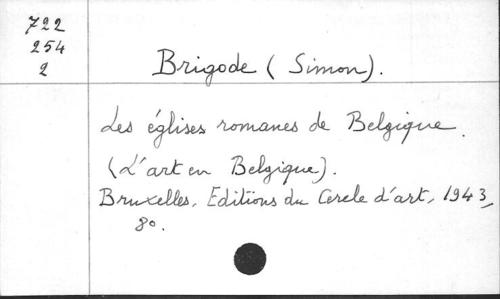 722
254
2
Brigode (Simon).
Les églises romanes de Belgique.
(L'art en Belgique).
Bruxelles, Editions du Cercle d'art, 1943,
8o.